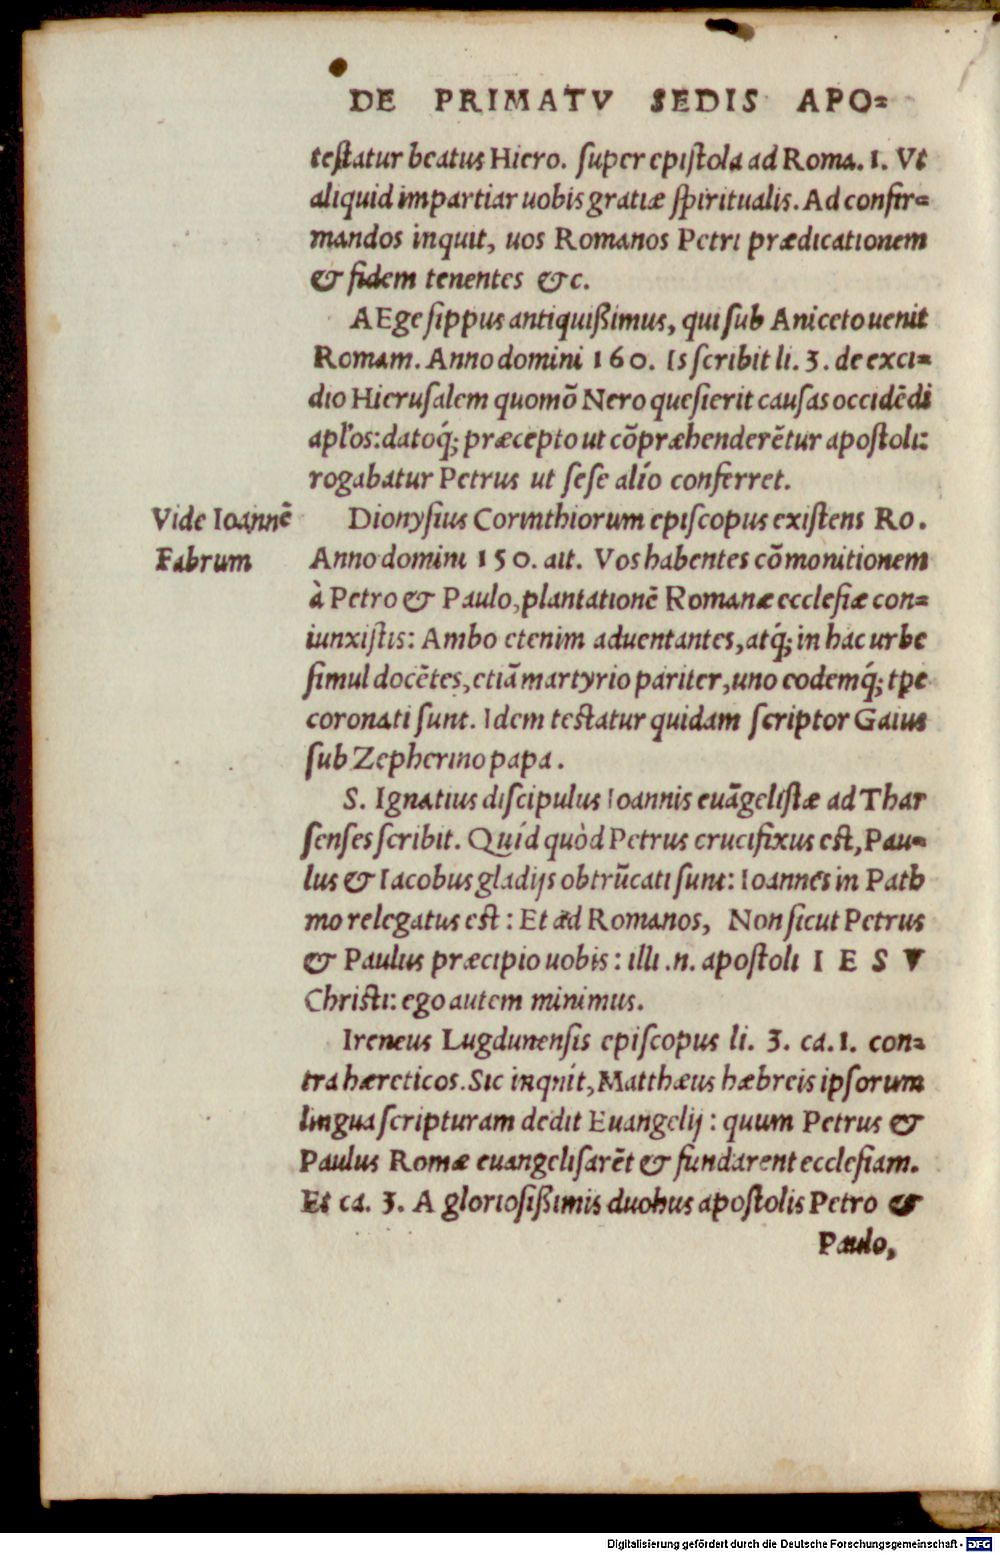 DE PRIMATV SEDIS APO=
teſtatur beatus Hiero. ſuper epiſtola ad Roma. 1. Vt
aliquid impartiar uobis gratiæ ſpiritualis. Ad confir=
mandos inquit, uos Romanos Petri prædicationem
& fidem tenentes &c.
AEgeſippus antiquißimus, qui ſub Aniceto uenit
Romam. Anno domini 160. Is ſcribit li. 3. de exci=
dio Hieruſalem quomō Nero queſierit cauſas occidēdi
apľos: datoq́; præcepto ut cōpræhenderētur apoſtoli:
rogabatur Petrus ut ſeſe alio conferret.
Vide Ioannē
Fabrum
Dionyſius Corinthiorum epiſcopus exiſtens Ro.
Anno domini 150. ait. Vos habentes cōmonitionem
à Petro & Paulo, plantationē Romanæ eccleſiæ con=
iunxiſtis: Ambo etenim aduentantes, atq́; in hac urbe
ſimul docētes, etiā martyrio pariter, uno eodemq́; tpe
coronati ſunt. Idem teſtatur quidam ſcriptor Gaius
ſub Zepherino papa.
S. Ignatius diſcipulus Ioannis euāgeliſtæ ad Thar
ſenſes ſcribit. Quid quòd Petrus crucifixus eſt, Pau=
lus & Iacobus gladijs obtrūcati ſunt: Ioannes in Path
mo relegatus eſt: Et ad Romanos, Non ſicut Petrus
& Paulus præcipio uobis: illi .n. apoſtoli I E S V
Chriſti: ego autem minimus.
Ireneus Lugdunenſis epiſcopus li. 3. ca. 1. con=
tra hæreticos. Sic inqnit, Matthæus hæbreis ipſorum
lingua ſcripturam dedit Euangelij: quum Petrus &
Paulus Romæ euangeliſarēt & fundarent eccleſiam.
Et ca. 3. A glorioſißimis duobus apoſtolis Petro &
Paulo,
Digitalisierung gefördert durch die Deutsche Forschungsgemeinschaft - DFG